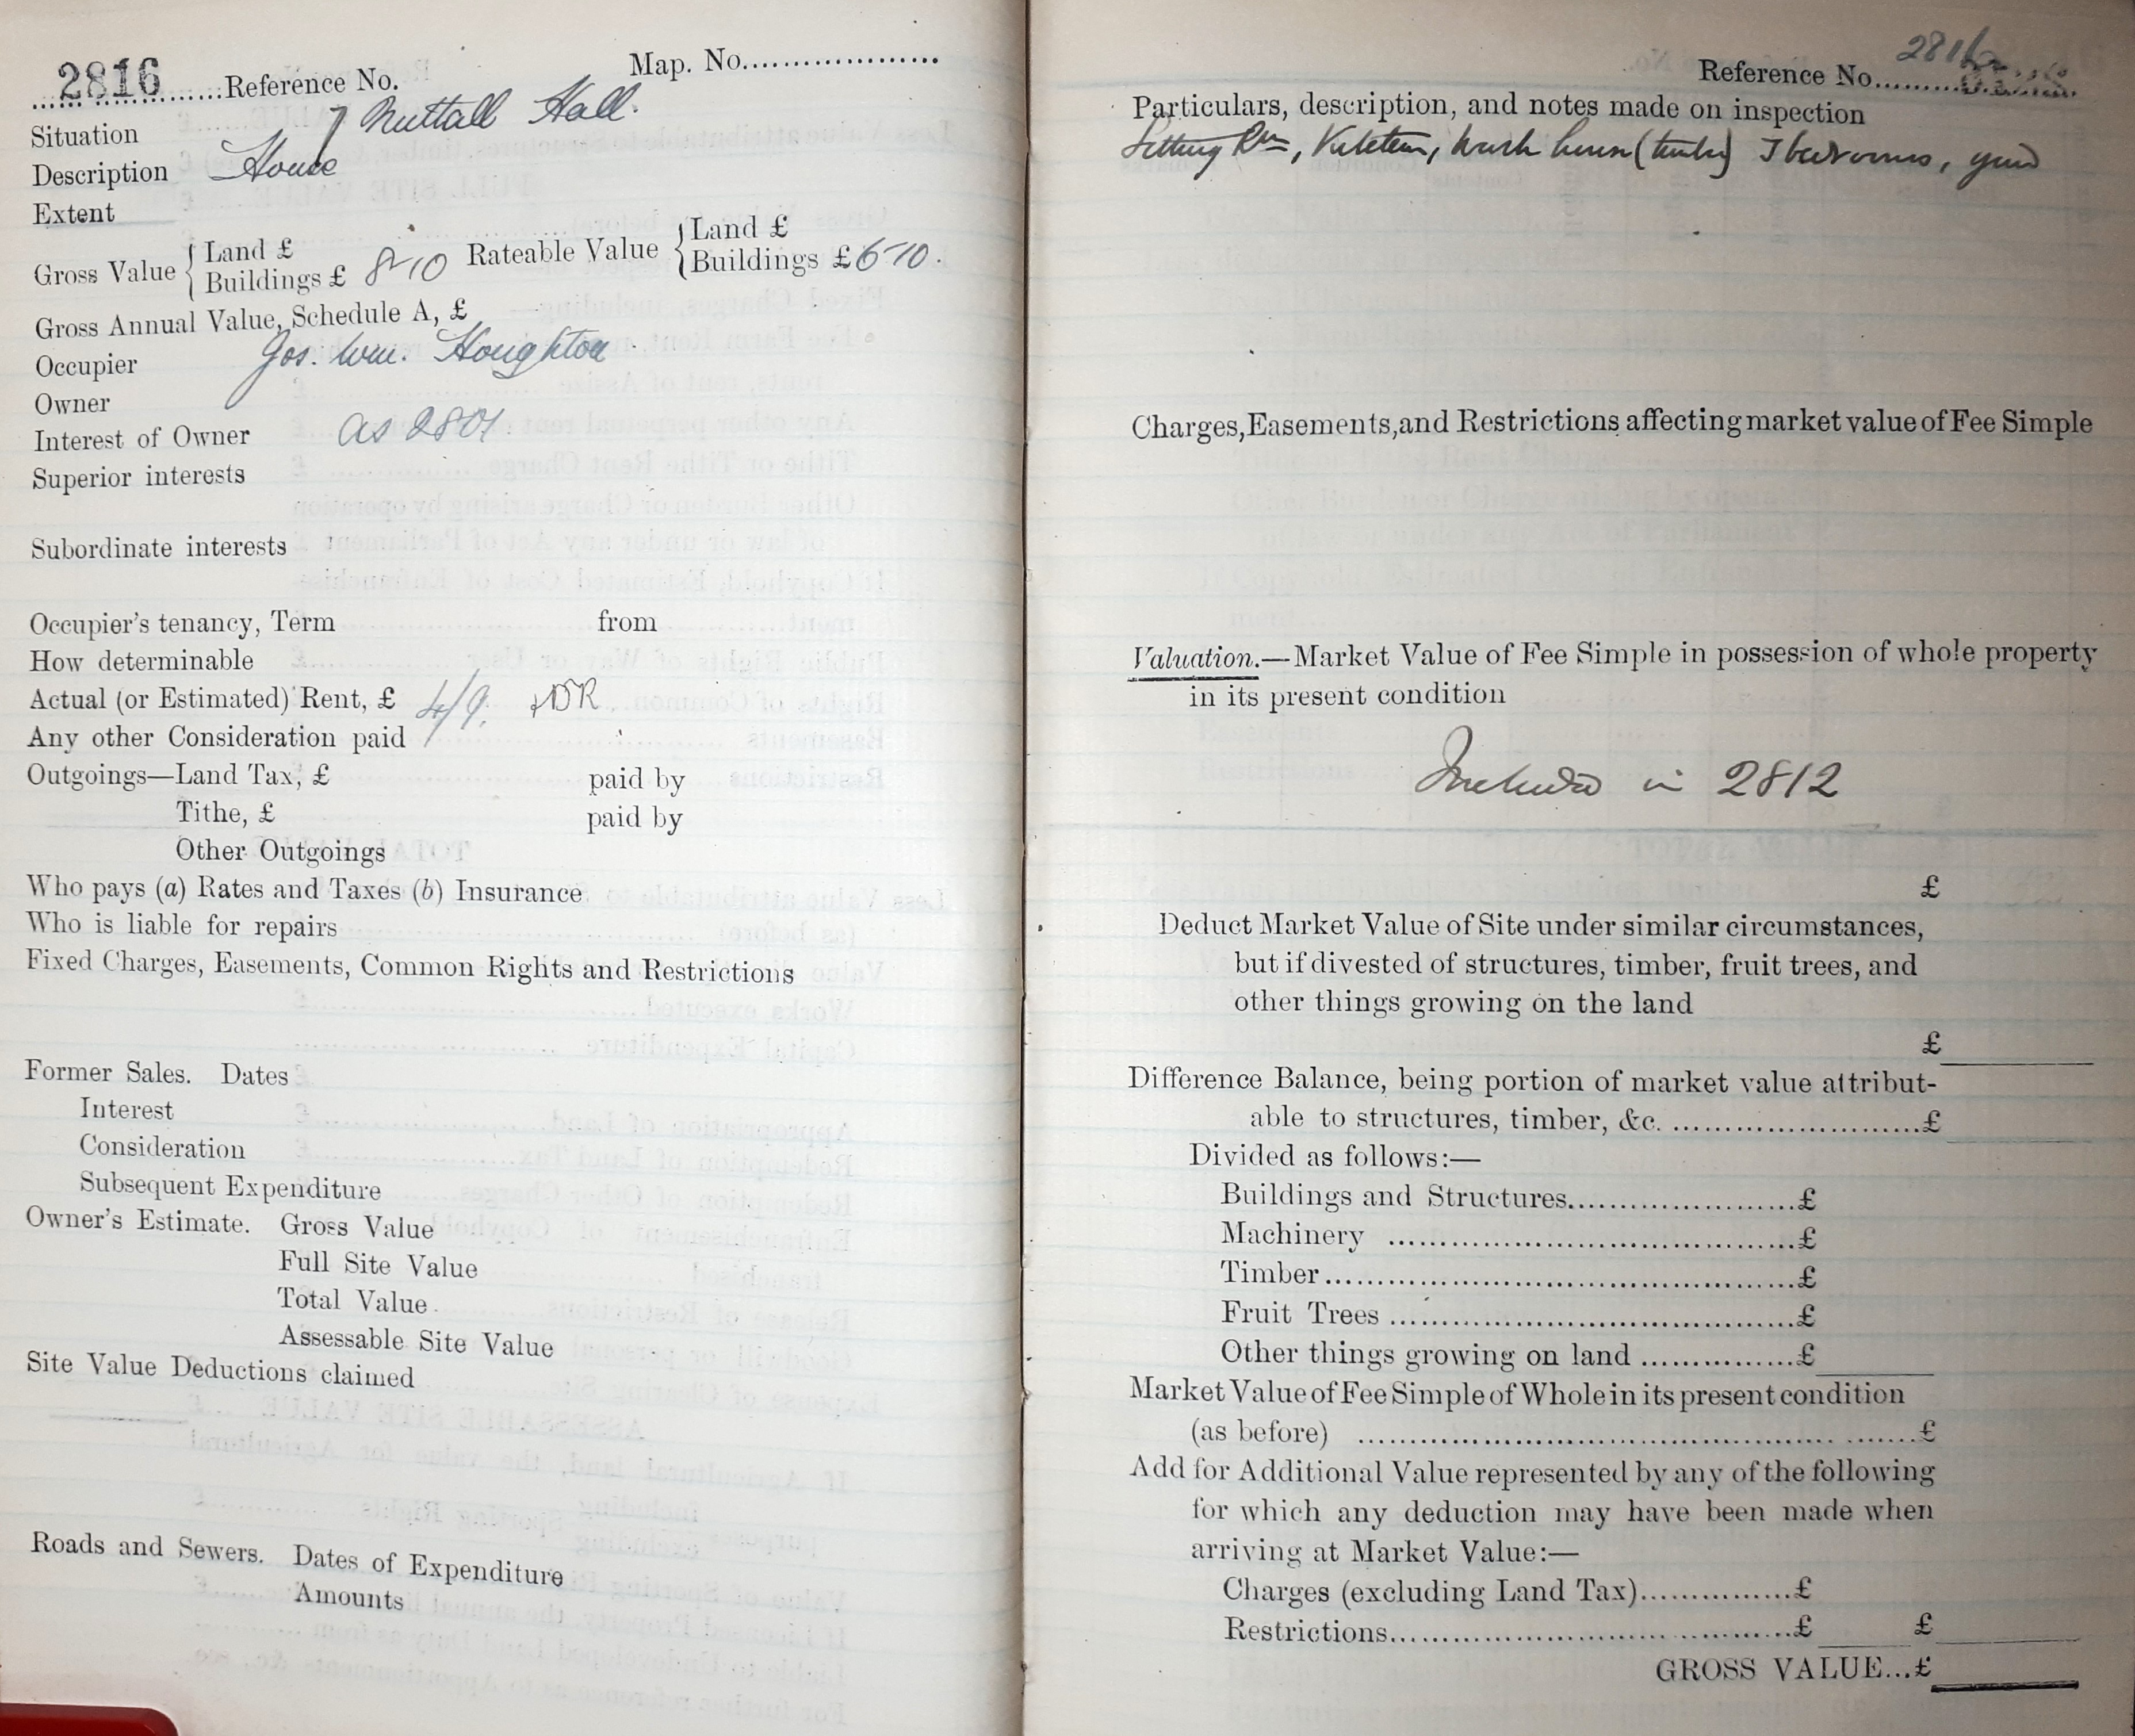 2816 Reference No. Map. No.
Situation 7 Nuttall Hall.
Description House
Extent
Gross Value { Land £ Rateable Value { Land £
Buildings £ 8-10 Buildings £ 6-10.
Gross Annual Value, Schedule A, £
Occupier Jos. Wm. Houghton
Owner
Interest of Owner as 2801.
Superior interests
Subordinate interests
Occupier's tenancy, Term from
How determinable
Actual (or Estimated) Rent, £ 4/9.
Any other Consideration paid
Outgoings—Land Tax, £ paid by
Tithe, £ paid by
Other Outgoings
Who pays (a) Rates and Taxes (b) Insurance
Who is liable for repairs
Fixed Charges, Easements, Common Rights and Restrictions
Former Sales. Dates
Interest
Consideration
Subsequent Expenditure
Owner's Estimate. Gross Value
Full Site Value
Total Value
Assessable Site Value
Site Value Deductions claimed
Roads and Sewers. Dates of Expenditure
Amounts
Reference No. 2816
Particulars, description, and notes made on inspection
Sitting Rm, Kitchen, Wash house 3 bedrooms, yard
Charges, Easements, and Restrictions affecting market value of Fee Simple
Valuation.—Market Value of Fee Simple in possession of whole property
in its present condition
Included in 2812
£
Deduct Market Value of Site under similar circumstances,
but if divested of structures, timber, fruit trees, and
other things growing on the land
£
Difference Balance, being portion of market value attribut-
able to structures, timber, &c. £
Divided as follows:—
Buildings and Structures £
Machinery £
Timber £
Fruit Trees £
Other things growing on land £
Market Value of Fee Simple of Whole in its present condition
(as before) £
Add for Additional Value represented by any of the following
for which any deduction may have been made when
arriving at Market Value:—
Charges (excluding Land Tax) £
Restrictions £ £
GROSS VALUE... £